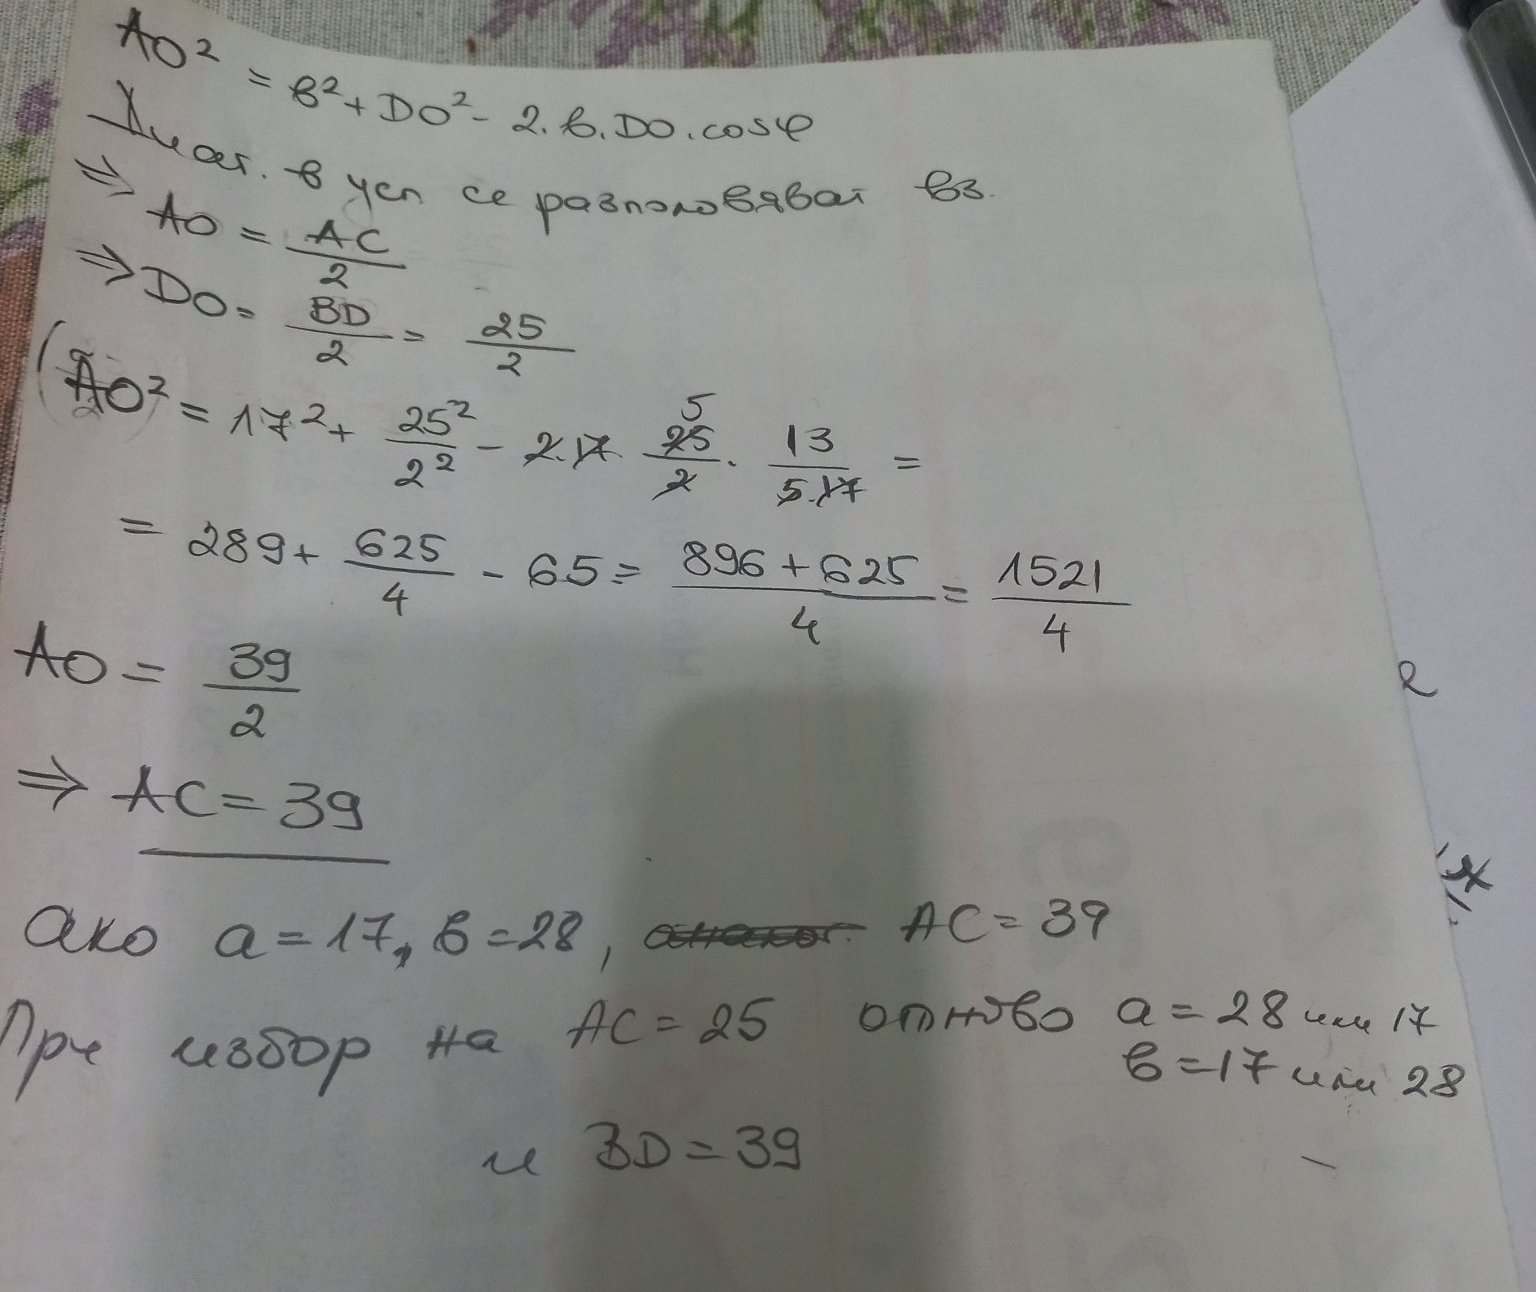 AO² = в² + DO² - 2.в.DO.cosφ
Диаг. в усп се разполовяват вз.
⇒ AO = AC/2
⇒ DO = BD/2 = 25/2
AO² = 17² + 25²/2² - 2.17.25/2 . 13/5.17 =
5
= 289 + 625/4 - 65 = 896 + 625/4 = 1521/4
AO = 39/2
⇒ AC = 39
ако a = 17, в = 28, AC = 39
При избор на AC = 25 отново a = 28 или 17
в = 17 или 28
и BD = 39